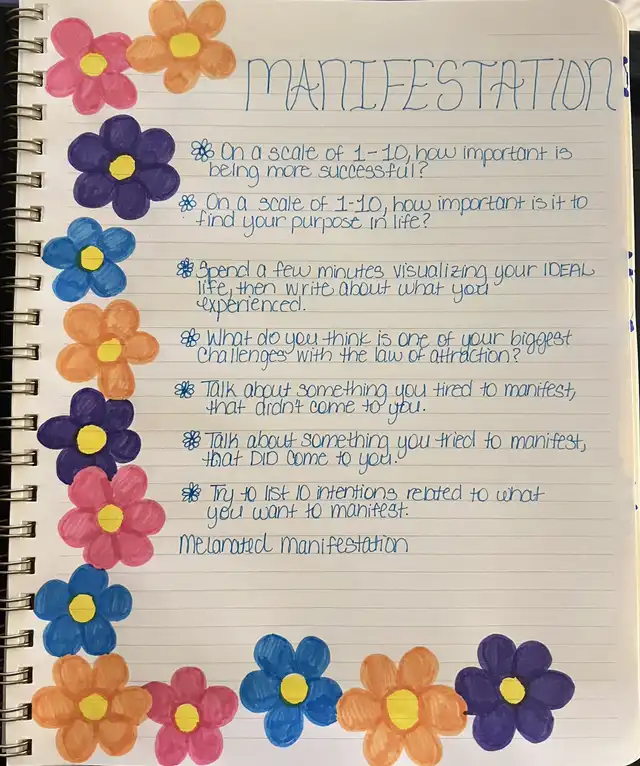 MANIFESTATION
On a scale of 1-10, how important is
being more successful?
On a scale of 1-10, how important is it to
find your purpose in life?
Spend a few minutes visualizing your IDEAL
life, then write about what you
experienced.
What do you think is one of your biggest
challenges with the law of attraction?
Talk about something you tired to manifest,
that didn't come to you.
Talk about something you tried to manifest,
that DID come to you.
Try to list 10 intentions related to what
you want to manifest.
Melanated Manifestation